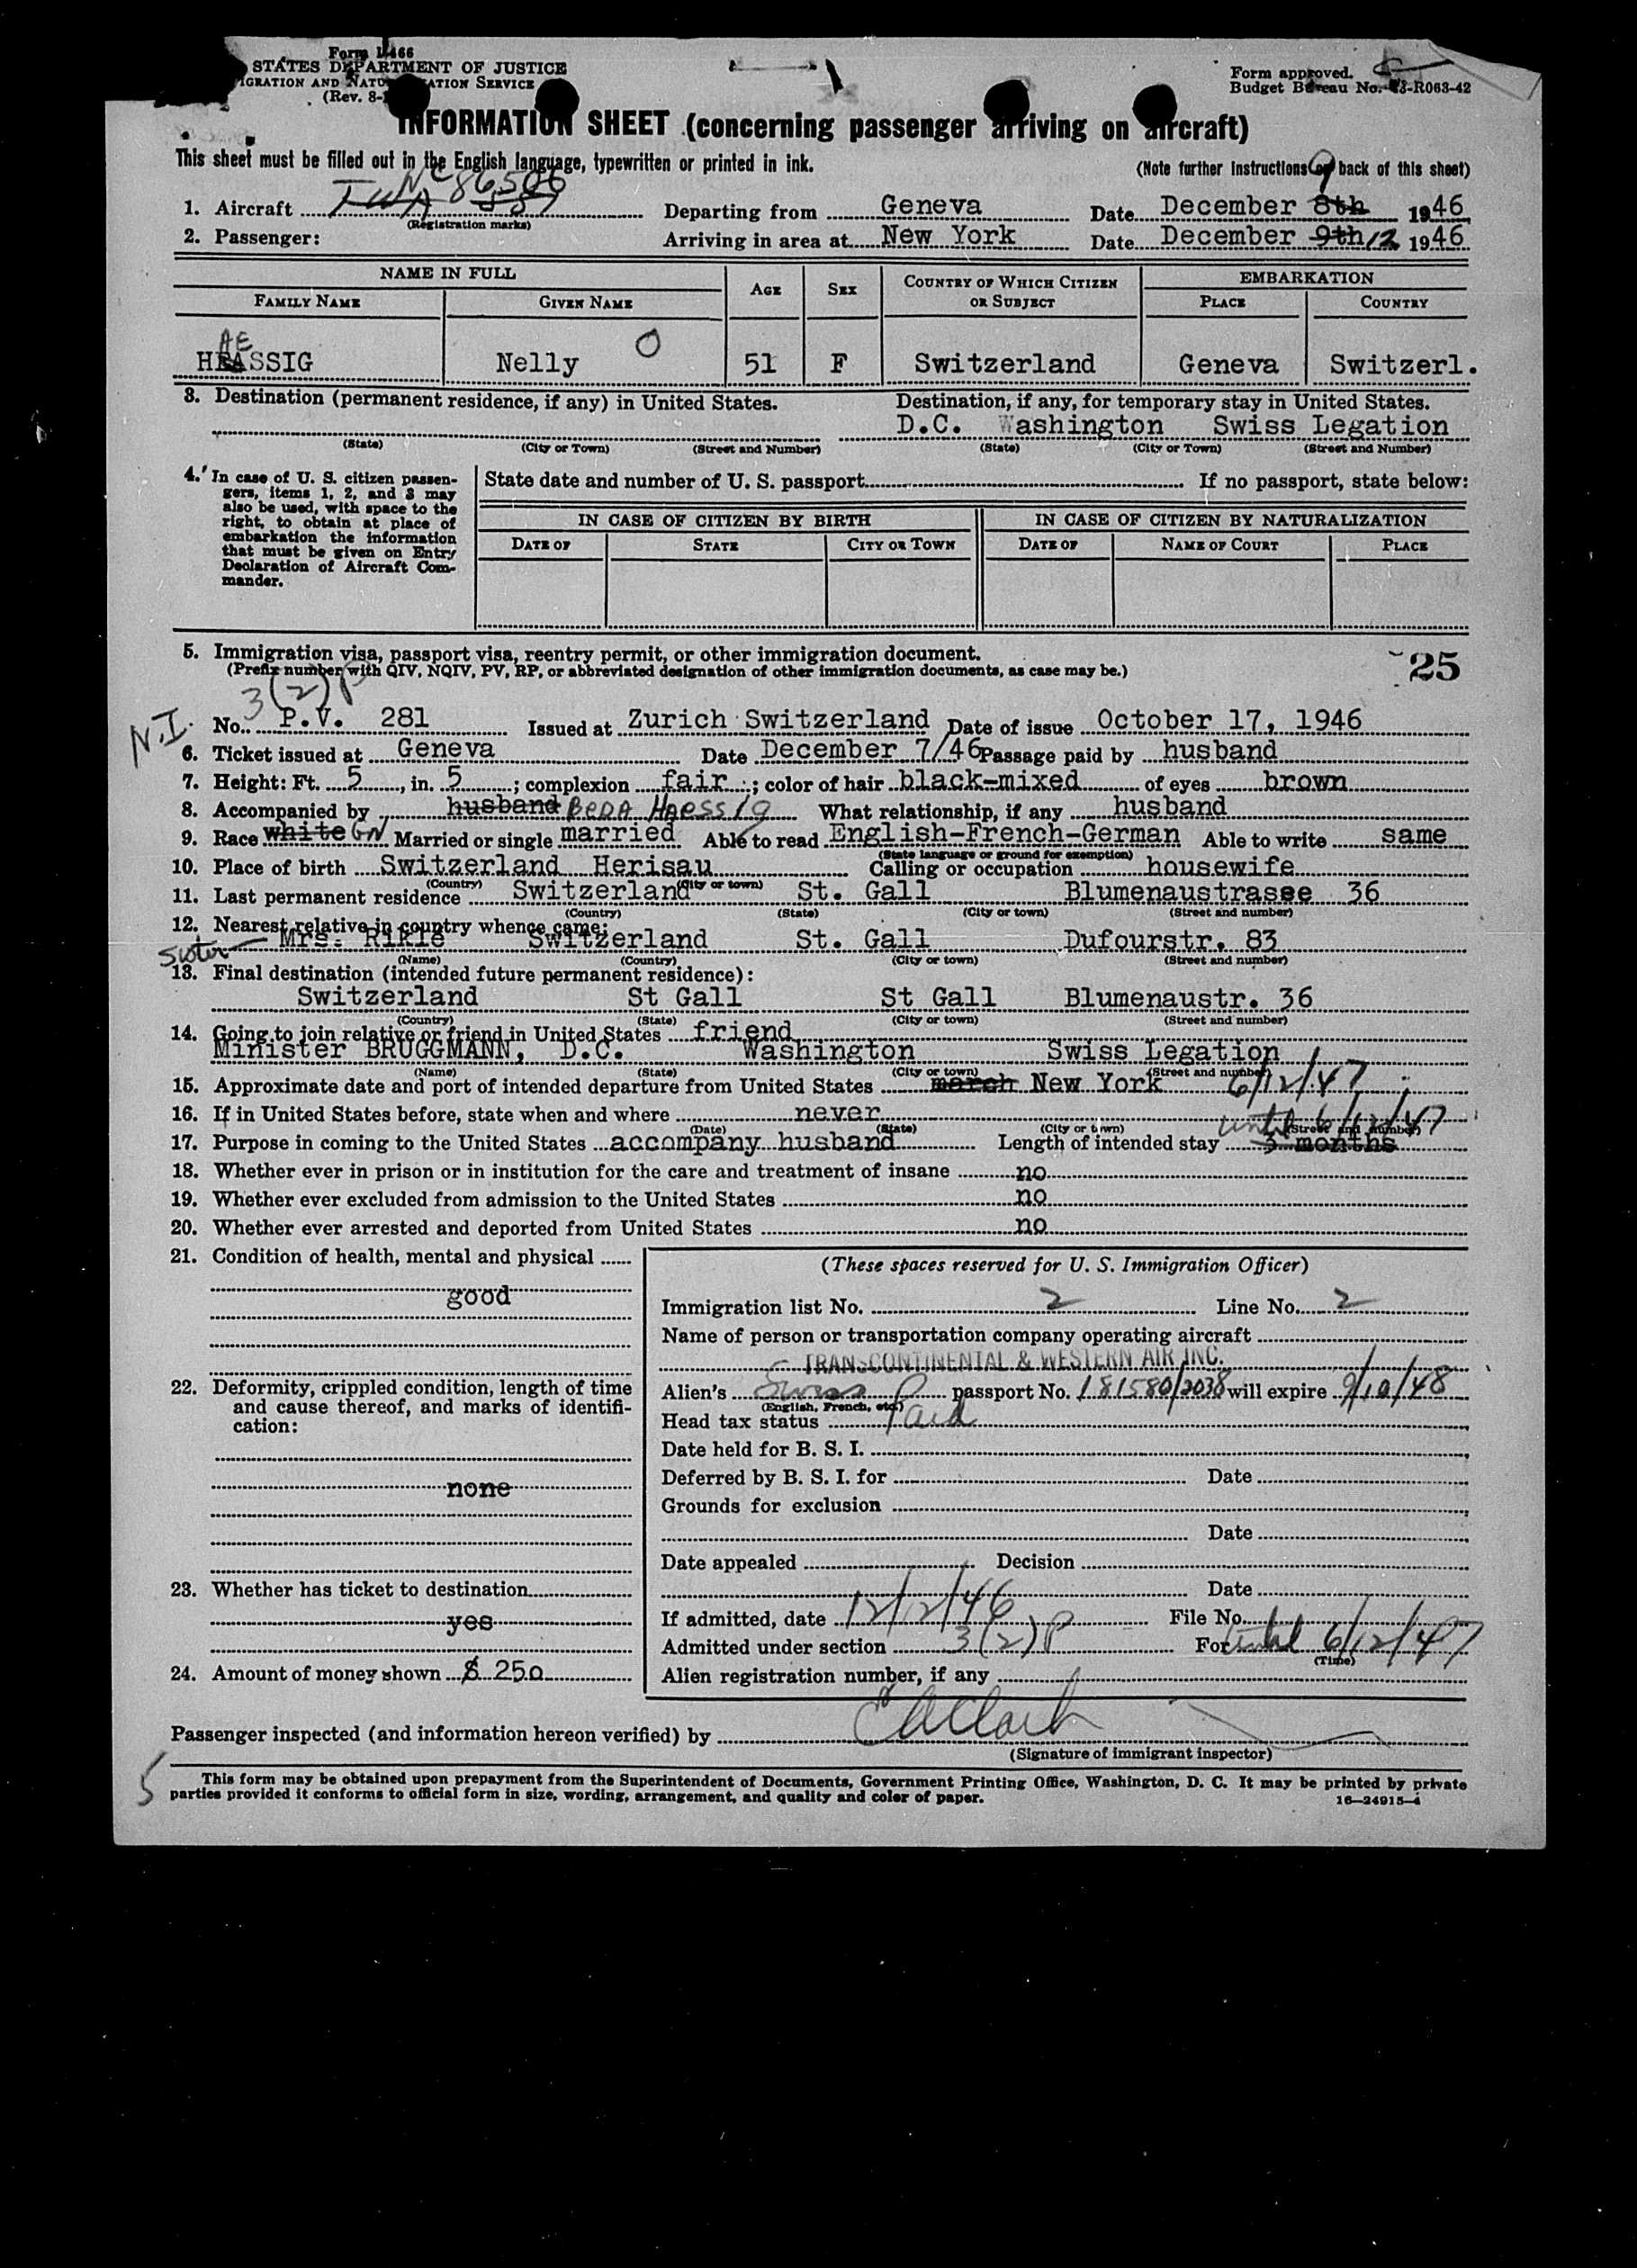 Form I-466
STATES DEPARTMENT OF JUSTICE
IGRATION AND NATU ATION SERVICE
(Rev. 8-
Form approved.
Budget Bureau No. 43-R063-42
INFORMATION SHEET (concerning passenger arriving on aircraft)
This sheet must be filled out in the English language, typewritten or printed in ink.
(Note further instructions on back of this sheet)
NC 86506
9
1. Aircraft TWA Departing from Geneva Date December 8th 1946
(Registration marks)
2. Passenger: Arriving in area at New York Date December 9th 12 1946
NAME IN FULL AGE SEX COUNTRY OF WHICH CITIZEN OR SUBJECT EMBARKATION
FAMILY NAME GIVEN NAME PLACE COUNTRY
AE
HEASSIG Nelly O 51 F Switzerland Geneva Switzerl.
3. Destination (permanent residence, if any) in United States. Destination, if any, for temporary stay in United States.
D.C. Washington Swiss Legation
(State) (City or Town) (Street and Number) (State) (City or Town) (Street and Number)
4. In case of U. S. citizen passen-
gers, items 1, 2, and 3 may
also be used, with space to the
right, to obtain at place of
embarkation the information
that must be given on Entry
Declaration of Aircraft Com-
mander.
State date and number of U. S. passport If no passport, state below:
IN CASE OF CITIZEN BY BIRTH IN CASE OF CITIZEN BY NATURALIZATION
DATE OF STATE CITY OR TOWN DATE OF NAME OF COURT PLACE
5. Immigration visa, passport visa, reentry permit, or other immigration document.
(Prefix number with QIV, NQIV, PV, RP, or abbreviated designation of other immigration documents, as case may be.)
25
3(2)P
N.I.
No. P.V. 281 Issued at Zurich Switzerland Date of issue October 17, 1946
6. Ticket issued at Geneva Date December 7/46 Passage paid by husband
7. Height: Ft. 5, in. 5; complexion fair; color of hair black-mixed of eyes brown
8. Accompanied by husband BEDA HAESSIG What relationship, if any husband
9. Race white GN Married or single married Able to read English-French-German Able to write same
(State language or ground for exemption)
10. Place of birth Switzerland Herisau Calling or occupation housewife
(Country) (City or town)
11. Last permanent residence Switzerland St. Gall Blumenaustrasse 36
(Country) (State) (City or town) (Street and number)
12. Nearest relative in country whence came:
Sister Mrs. Rikle Switzerland St. Gall Dufourstr. 83
(Name) (Country) (City or town) (Street and number)
13. Final destination (intended future permanent residence):
Switzerland St Gall St Gall Blumenaustr. 36
(Country) (State) (City or town) (Street and number)
14. Going to join relative or friend in United States friend
Minister BRUGGMANN, D.C. Washington Swiss Legation
(Name) (State) (City or town) (Street and number)
15. Approximate date and port of intended departure from United States march New York 6/12/47
16. If in United States before, state when and where never
(Date) (State) (City or town) (Street and number)
until 6/12/47
17. Purpose in coming to the United States accompany husband Length of intended stay 3 months
18. Whether ever in prison or in institution for the care and treatment of insane no
19. Whether ever excluded from admission to the United States no
20. Whether ever arrested and deported from United States no
21. Condition of health, mental and physical
good
22. Deformity, crippled condition, length of time
and cause thereof, and marks of identifi-
cation:
none
23. Whether has ticket to destination
yes
24. Amount of money shown $ 250
(These spaces reserved for U. S. Immigration Officer)
Immigration list No. 2 Line No. 2
Name of person or transportation company operating aircraft
TRANSCONTINENTAL & WESTERN AIR INC.
Alien's Swiss passport No. 181580/2038 will expire 9/10/48
(English, French, etc.)
Head tax status Paid
Date held for B. S. I.
Deferred by B. S. I. for Date
Grounds for exclusion
Date
Date appealed Decision
Date
If admitted, date 12/12/46 File No.
Admitted under section 3(2)P For until 6/12/47
(Time)
Alien registration number, if any
Passenger inspected (and information hereon verified) by
(Signature of immigrant inspector)
5
This form may be obtained upon prepayment from the Superintendent of Documents, Government Printing Office, Washington, D. C. It may be printed by private
parties provided it conforms to official form in size, wording, arrangement, and quality and color of paper.
16—24915-1